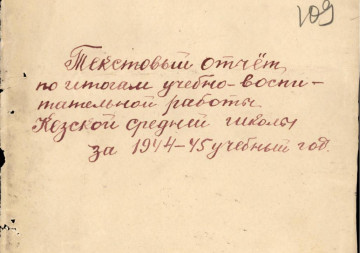 109
Текстовый отчёт
по итогам учебно-воспи-
тательной работы
Козской средней школы
за 1944-45 учебный год.